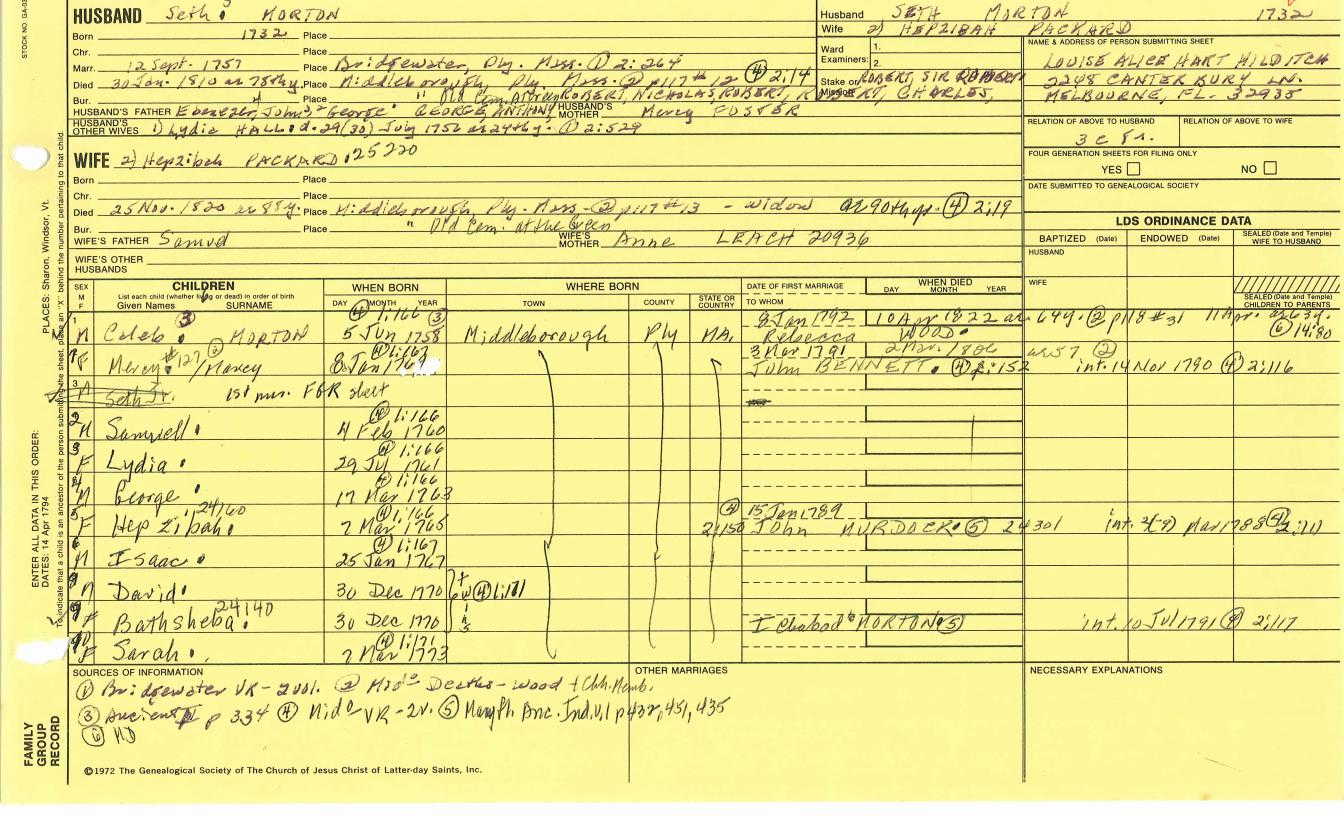 HUSBAND Seth MORTON
Husband SETH MORTON 1732
Wife 2) HEPZIBAH PACKARD
Born 1732 Place
Chr. Place
Ward Examiners: 1. 2.
Marr. 12 Sept. 1757 Place Bridgewater, Ply. Mass. ① 2:264
Died 30 Jan. 1810 ae 78thy. Place Middleborough, Ply Mass. ② p117 #12 ④ 2:14
Stake or Mission ROBERT, SIR ROBERT
Bur. Place " Old Cem. at Green ROBERT, NICHOLAS, ROBERT, ROBERT, CHARLES,
HUSBAND'S FATHER Ebenezer, John George GEORGE, ANTHONY HUSBAND'S MOTHER Mercy FOSTER
HUSBAND'S OTHER WIVES 1) Lydia HALL d. 29(30) July 1756 ae 24thy. ① 2:529
NAME & ADDRESS OF PERSON SUBMITTING SHEET
LOUISE ALICE HART HILDITCH
2298 CANTERBURY LN.
MELBOURNE, FL. 32935
RELATION OF ABOVE TO HUSBAND RELATION OF ABOVE TO WIFE
3 c 8 r.
WIFE 2) Hepzibah PACKARD 25220
FOUR GENERATION SHEETS FOR FILING ONLY
YES NO
Born Place
Chr. Place
DATE SUBMITTED TO GENEALOGICAL SOCIETY
Died 25 Nov. 1820 ae 88y. Place Middleborough, Ply. Mass. ② p117 #13 - widow ae 90thyr. ④ 2:19
Bur. Place " Old Cem. at the Green
WIFE'S FATHER Samuel WIFE'S MOTHER Anne LEACH 20936
WIFE'S OTHER HUSBANDS
LDS ORDINANCE DATA
BAPTIZED (Date) ENDOWED (Date) SEALED (Date and Temple) WIFE TO HUSBAND
HUSBAND
WIFE
SEALED (Date and Temple) CHILDREN TO PARENTS
SEX M F CHILDREN WHEN BORN WHERE BORN DATE OF FIRST MARRIAGE WHEN DIED
List each child (whether living or dead) in order of birth
Given Names SURNAME DAY MONTH YEAR TOWN COUNTY STATE OR COUNTRY TO WHOM DAY MONTH YEAR
④ 1:166 ③ 8 Jan 1792 10 Apr 1822 ae 64y. ② p118 #31 11 Apr. ae 63y.
1 M Caleb 3 MORTON 5 Jun 1758 Middleborough Ply MA. Rebecca WOOD ⑥ 14:80
④ 1:167 3 Mar 1791 2 Mar. 1806 ae 57 ②
F Mercy #127 / Marcy 8 Jan 1769 John BENNETT. ④ 2:152 int. 14 Nov 1790 ④ 2:116
3 M Seth Jr. 1st mar. FGR sheet
④ 1:166
2 M Samuell 4 Feb 1760
④ 1:166
3 F Lydia 29 Jul 1761
④ 1:166
4 M George 17 Mar 1763
24160 ④ 1:166 ④ 15 Jan 1789
5 F Hepzibah 7 Mar 1765 2:150 John MURDOCK ⑤ 24301 int. Mar 1788 ④ 2:110
④ 1:167
6 M Isaac 25 Jan 1767
8 M David 30 Dec 1770 twins ④ 1:171
24140
9 F Bathsheba 30 Dec 1770 Ichabod MORTON ⑤ int. 10 Jul 1791 ④ 2:117
④ 1:171
F Sarah 7 Mar 1773
SOURCES OF INFORMATION OTHER MARRIAGES NECESSARY EXPLANATIONS
① Bridgewater VR - 2 vol. ② Mid° Deaths - Wood + Chh. Memb.
③ Ancient p 334 ④ Mid° VR - 2v. ⑤ Mary Ph. Anc. Ind. v.1 p 432, 451, 435
⑥ MD
©1972 The Genealogical Society of The Church of Jesus Christ of Latter-day Saints, Inc.
FAMILY GROUP RECORD
ENTER ALL DATA IN THIS ORDER:
DATES: 14 Apr 1794
PLACES: Sharon, Windsor, Vt.
To indicate that a child is an ancestor of the person submitting the sheet, place an "X" behind the number pertaining to that child.